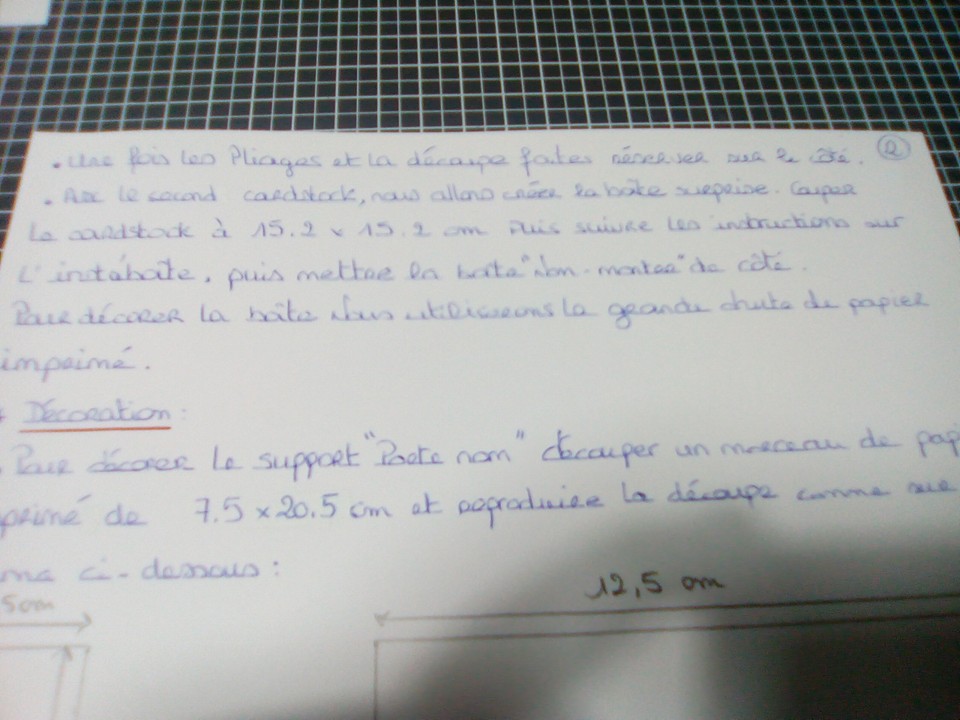 • Une fois les Pliages et la découpe faites réserver sur le côté. ②
• Avec le second cardstock, nous allons créer la boîte surprise. Couper
Le cardstock à 15.2 x 15.2 cm puis suivre les instructions sur
L'instaboîte, puis mettre la boîte "Non-montée" de côté.
Pour décorer la boîte Nous utiliserons la grande chute de papier
imprimé.
Décoration :
Pour décorer le support "Porte nom" découper un morceau de pap
primé de 7.5 x 20.5 cm et reproduire la découpe comme sur
ma ci-dessous :
5cm
12,5 cm